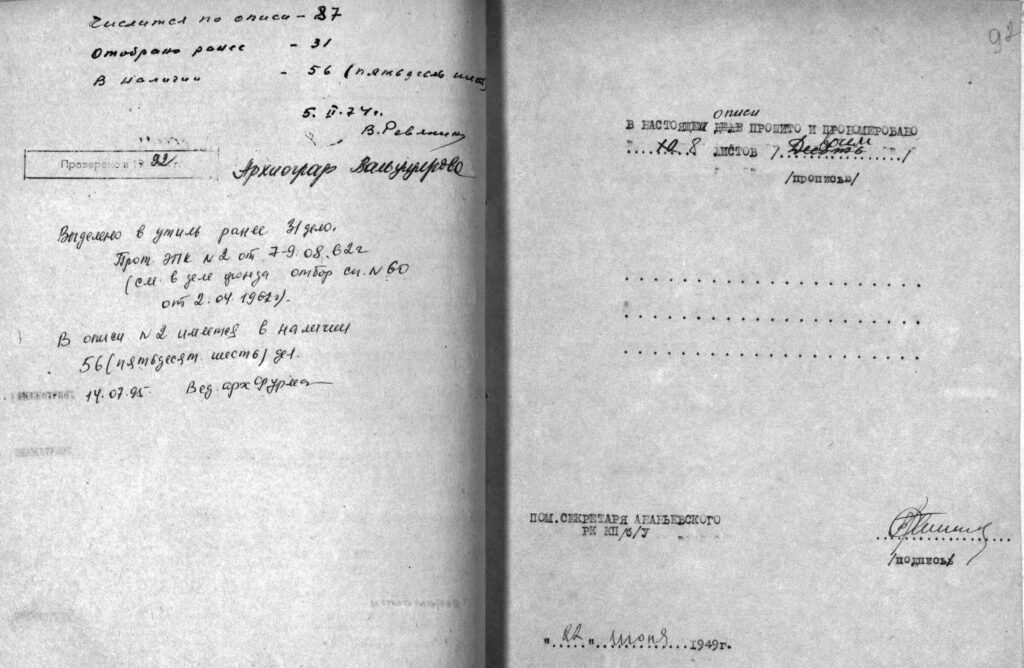 Числится по описи - 87
Отобрано ранее - 31
В наличии - 56 (пятьдесят шест
5. II. 74 г.
Проверено в 1992 г.
Археограф
Выделено в утиль ранее 31 дело.
Прот ЭПК №2 от 7-9.08.62г
(см. в деле фонда отбор сп. №60
от 2.04.1962г).
В описи №2 имеется в наличии
56 (пятьдесят шесть) дел.
14.07.95. Вед. арх Фурма
92
описи
В НАСТОЯЩЕМ ДЕЛЕ ПРОШИТО И ПРОНОМЕРОВАНО
10 8 ЛИСТОВ / Десять восем /
/ПРОПИСЬЮ/
ПОМ. СЕКРЕТАРЯ АНАНЬЕВСКОГО
РК КП/б/У
/ПОДПИСЬ/
"22" июня 1949г.